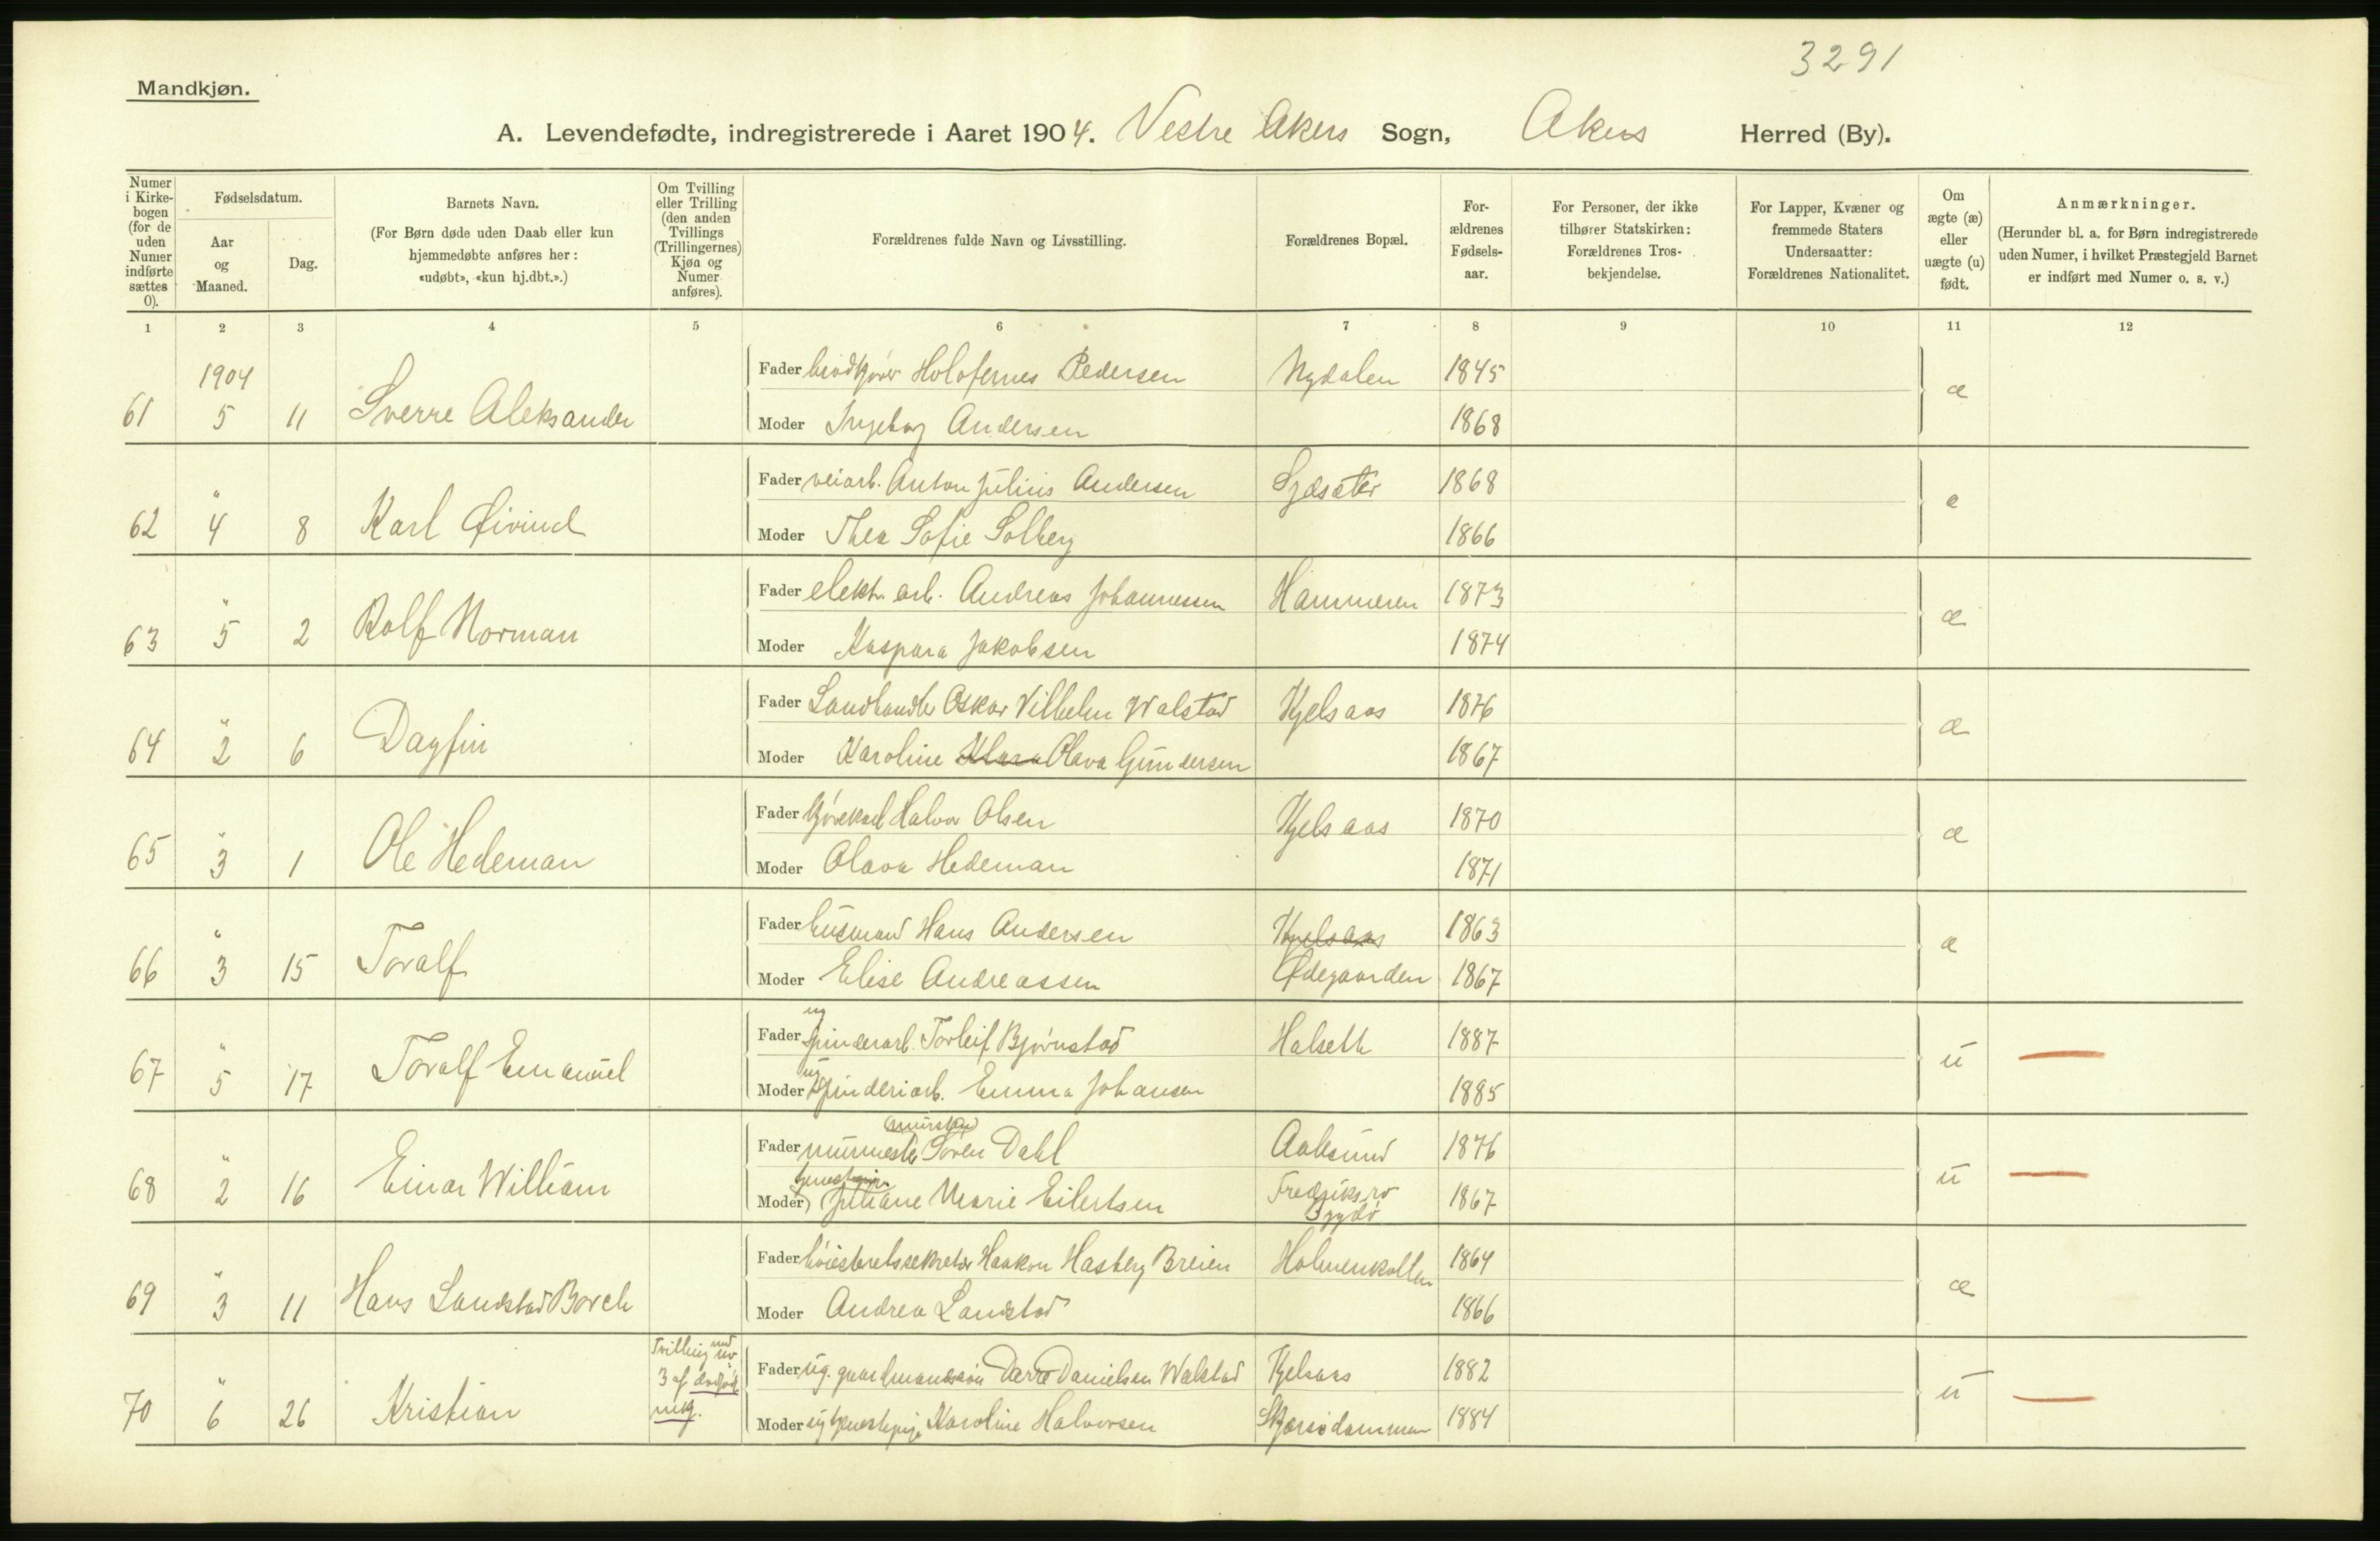 3291
Mandkjøn.
A. Levendefødte, indregistrerede i Aaret 1904. Vestre Akers Sogn, Akers Herred (By).
Numer i Kirkebogen (for de uden Numer indførte sættes 0).
Fødselsdatum.
Aar og Maaned.
Dag.
Barnets Navn.
(For Børn døde uden Daab eller kun hjemmedøbte anføres her: «udøbt», «kun hj.dbt.».)
Om Tvilling eller Trilling (den anden Tvillings (Trillingernes) Kjøn og Numer anføres).
Forældrenes fulde Navn og Livsstilling.
Forældrenes Bopæl.
Forældrenes Fødselsaar.
For Personer, der ikke tilhører Statskirken: Forældrenes Trosbekjendelse.
For Lapper, Kvæner og fremmede Staters Undersaatter: Forældrenes Nationalitet.
Om ægte (æ) eller uægte (u) født.
Anmærkninger.
(Herunder bl. a. for Børn indregistrerede uden Numer, i hvilket Præstegjeld Barnet er indført med Numer o. s. v.)
1 2 3 4 5 6 7 8 9 10 11 12
1904
Fader brødkjører Holofernes Pedersen Nydalen 1845
61 5 11 Sverre Aleksander æ
Moder Ingeborg Andersen 1868
Fader veiarb. Anton Julius Andersen 1868
62 " 4 8 Karl Øivind æ
Moder Thea Sofie Solberg 1866
Fader elektr. arb. Andreas Johannessen Hammeren 1873
63 " 5 2 Rolf Norman æ
Moder Kaspara Jakobsen 1874
Fader Landhandler Oskar Vilhelm Walstad Kjelsaas 1876
64 " 2 6 Dagfin æ
Moder Karoline Klara Olava Gundersen 1867
Fader Kjørekarl Halvor Olsen Kjelsaas 1870
65 " 3 1 Ole Hedeman æ
Moder Olava Hedeman 1871
Fader husmand Hans Andersen Kjelsaas 1863
66 " 3 15 Toralf æ
Moder Elise Andreassen Ødegaarden 1867
Fader ug spinderarb. Torleif Bjørnstad Halseth 1887
67 " 5 17 Toralf Emanuel u
Moder ug spinderiarb. Emma Johansen 1885
Fader murmester Søren Dahl Aalesund 1876
68 " 2 16 Einar William u
Moder Juliane Marie Eilertsen Fredriksro Bygdø 1867
Fader høiesteretssekretær Haakon Hasberg Breien Holmenkollen 1864
69 " 3 11 Hans Landstad Borch æ
Moder Andrea Landstad 1866
Tvilling med
3 af dødfødte
Fader ug. gaardmandssøn Danielsen Walstad Kjelsaas 1882
70 " 6 26 Kristian u
Moder ug tjenestepige Karoline Halvorsen Skjærsødammen 1884